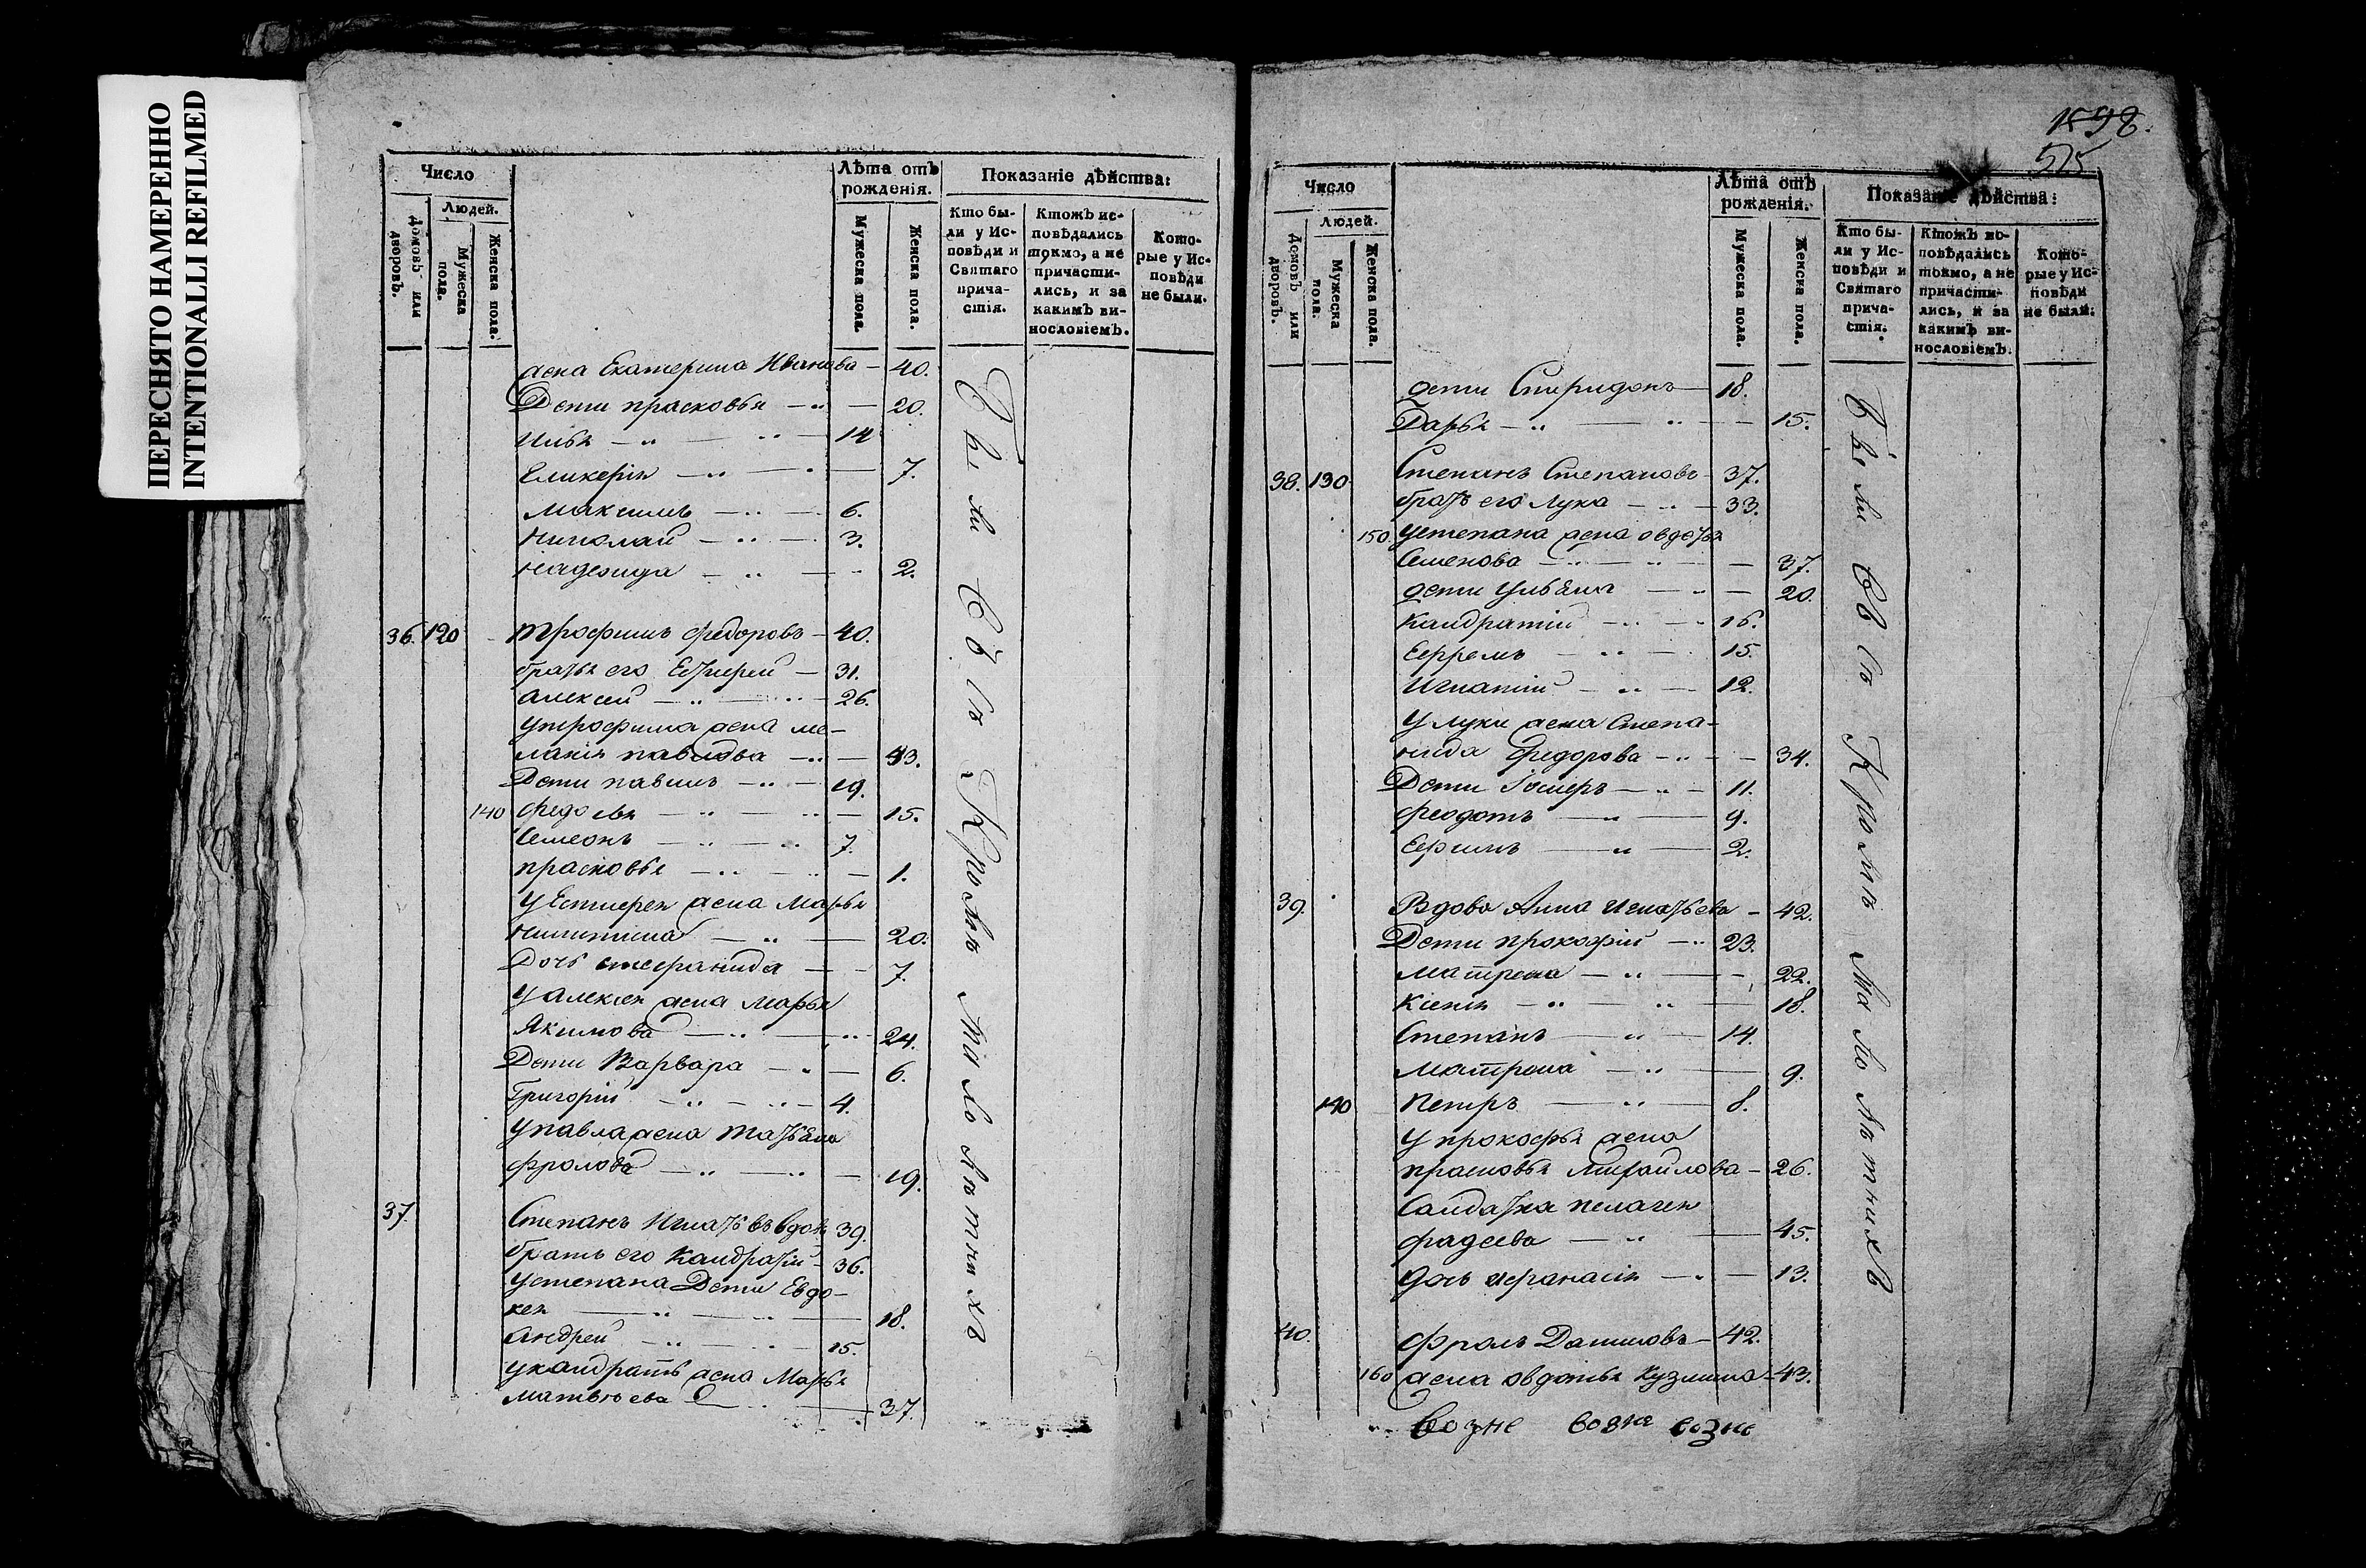 ПЕРЕСНЯТО НАМЕРЕННО
INTENTIONALLI REFILMED
Число
Людей.
Домовъ или дворовъ.
Мужеска пола.
Женска пола.
Лѣта отъ рожденія.
Мужеска пола.
Женска пола.
Показаніе дѣйства:
Кто были у Исповѣди и Святаго причастія.
Ктожъ исповѣдались токмо, а не причастились, и за какимъ винословіемъ.
Которые у Исповѣди не были.
жена Екатерина Иванова — 40.
Дети прасковья — 20.
Илья — 14
Гликерія — 7.
Максимъ — 6.
Николай — 3.
Надежда — 2.
36. 120 Трофимъ Федоровъ — 40.
братья его Евтифей — 31.
Алексей — 26.
У трофима жена ме-
ланія павлова — 43.
Дети павилъ — 19.
140 федосья — 15.
Семеонъ — 7.
прасковья — 1.
жена Марья
Никитина — 20.
Дочь стефанида — 7.
У алексея жена Марья
Якимова — 24.
Дети Варвара — 6.
Григорій — 4.
У павла жена татьяна
фролова — 19.
37. Степанъ Игнатьевъ вдов 39.
братъ его Кандратій — 36.
У степана Дети Евдо-
кея — 18.
Андрей — 15.
У кандратья жена Марья
матвѣева — 37.
Были Всѣ Кромѣ малолѣтнихъ
1598.
515
Число
Людей.
Домовъ или дворовъ.
Мужеска пола.
Женска пола.
Лѣта отъ рожденія.
Мужеска пола.
Женска пола.
Показаніе дѣйства:
Кто были у Исповѣди и Святаго причастія.
Ктожъ исповѣдались токмо, а не причастились, и за какимъ винословіемъ.
Которые у Исповѣди не были.
дети Спиридонъ — 18.
Дарья — 15.
38. 130 Степанъ Степановъ — 37.
братъ его Лука — 33.
150 У степана жена овдотья
Семенова — 37.
дети Ульяна — 20.
Кандратій — 16.
Ефремъ — 15.
Игнатій — 12.
У луки жена Степа-
нида Федорова — 34.
Дети — 11.
феодотъ — 9.
Ефимъ — 2.
39. Вдова Анна Игнатьева — 42.
Дети прокофій — 23.
Матрена — 22.
Ксенія — 18.
Степанъ — 14.
Матрена — 9.
140 Петръ — 8.
У прокофья жена
прасковья Михайлова — 26.
Салдатка пелагея
фадеева — 45.
дочь афанасія — 13.
40. фролъ Даниловъ — 42.
160 жена овдотья Кузмина — 43.
Были Всѣ Кромѣ малолѣтнихъ
возне возне возне